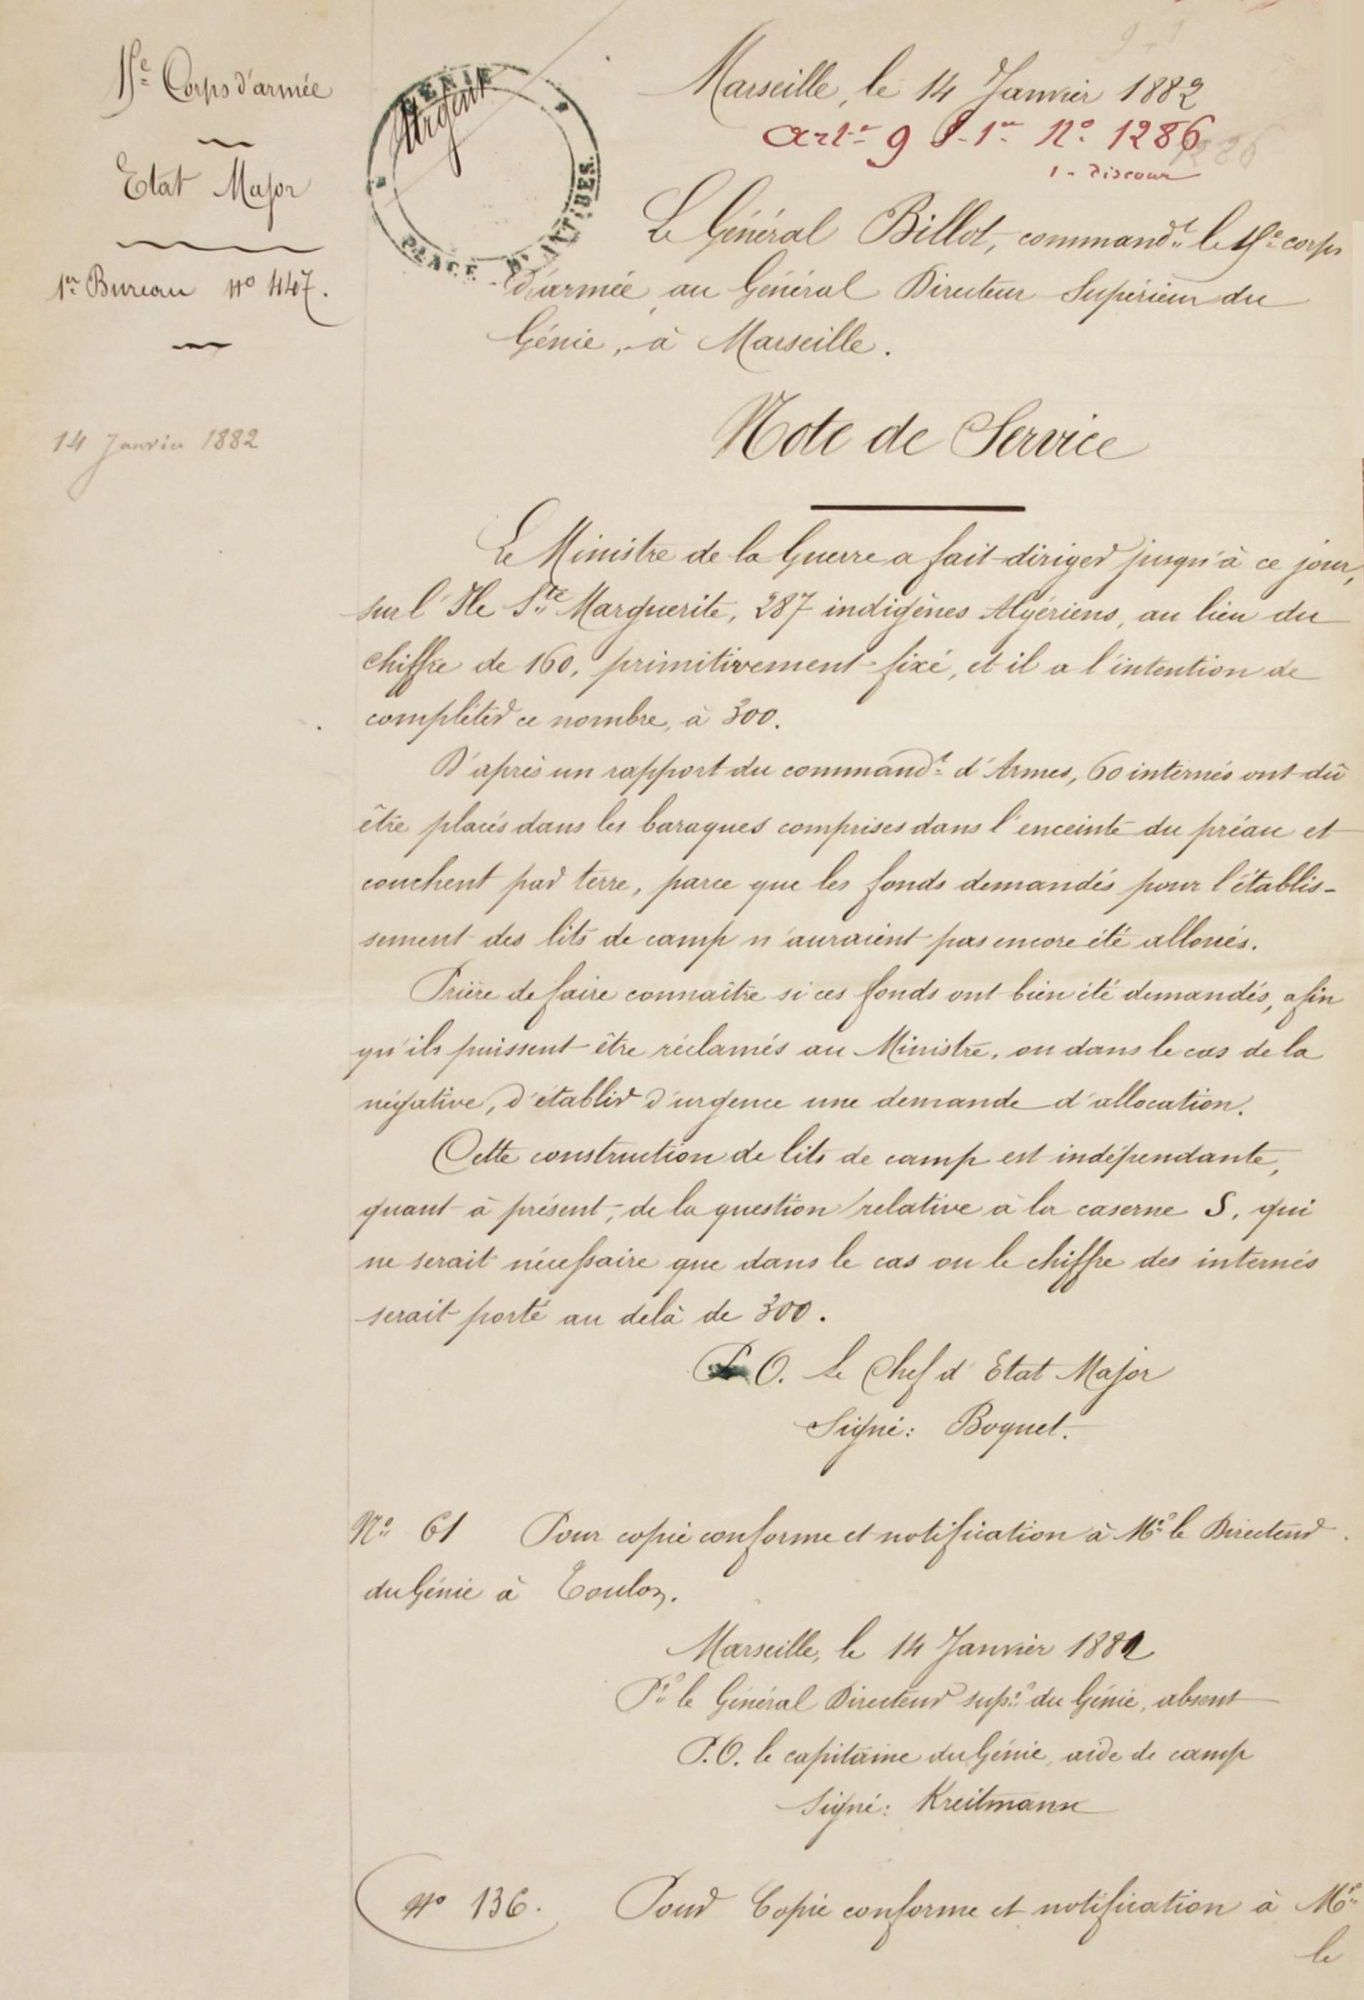 15e Corps d'armée
Etat Major
1er Bureau No 447.
14 Janvier 1882
GENIE
Urgent
PLACE D'ANTIBES.
Marseille, le 14 Janvier 1882
artle 9 §-1er No 1286
1286
Le Général Billot, commandt le 15e corps
d'armée au Général Directeur Supérieur du
Génie, à Marseille.
Note de Service
Le Ministre de la Guerre a fait diriger jusqu'à ce jour,
sur l'Ile Ste Marguerite, 287 indigènes Algériens, au lieu du
chiffre de 160, primitivement fixé, et il a l'intention de
compléter ce nombre, à 300.
D'après un rapport du commandt d'Armes, 60 internés ont dû
être placés dans les baraques comprises dans l'enceinte du préau et
couchent par terre, parce que les fonds demandés pour l'établis-
sement des lits de camp n'auraient pas encore été alloués.
Prière de faire connaître si ces fonds ont bien été demandés, afin
qu'ils puissent être réclamés au Ministre, ou dans le cas de la
négative, d'établir d'urgence une demande d'allocation.
Cette construction de lits de camp est indépendante,
quant à présent, de la question relative à la caserne S, qui
ne serait nécessaire que dans le cas ou le chiffre des internés
serait porté au delà de 300.
P. O. Le Chef d'Etat Major
Signé: Boquet.
No 61 Pour copie conforme et notification à Mr le Directeur
du Génie à Toulon.
Marseille, le 14 Janvier 1882
Pr le Général Directeur supr du Génie, absent
P.O. le capitaine du Génie, aide de camp
Signé: Kreitmann
No 136. Pour Copie conforme et notification à Mr
le